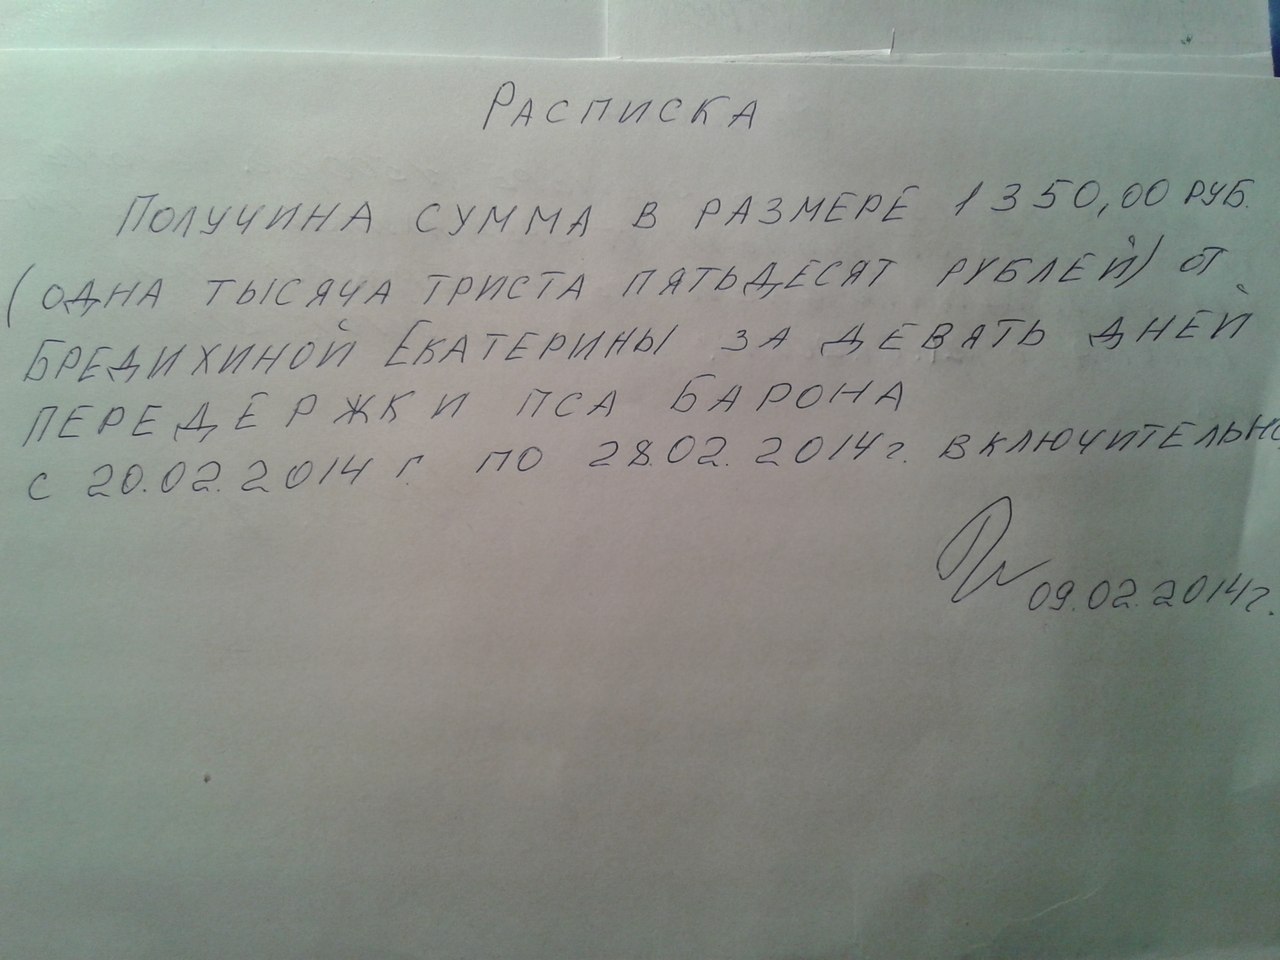 РАСПИСКА
ПОЛУЧИНА СУММА В РАЗМЕРЕ 1350,00 РУБ.
(ОДНА ТЫСЯЧА ТРИСТА ПЯТЬДЕСЯТ РУБЛЕЙ) ОТ
БРЕДИХИНОЙ ЕКАТЕРИНЫ ЗА ДЕВЯТЬ ДНЕЙ
ПЕРЕДЕРЖКИ ПСА БАРОНА
С 20.02.2014 Г. ПО 28.02.2014 г. ВКЛЮЧИТЕЛЬНО
09.02.2014 г.